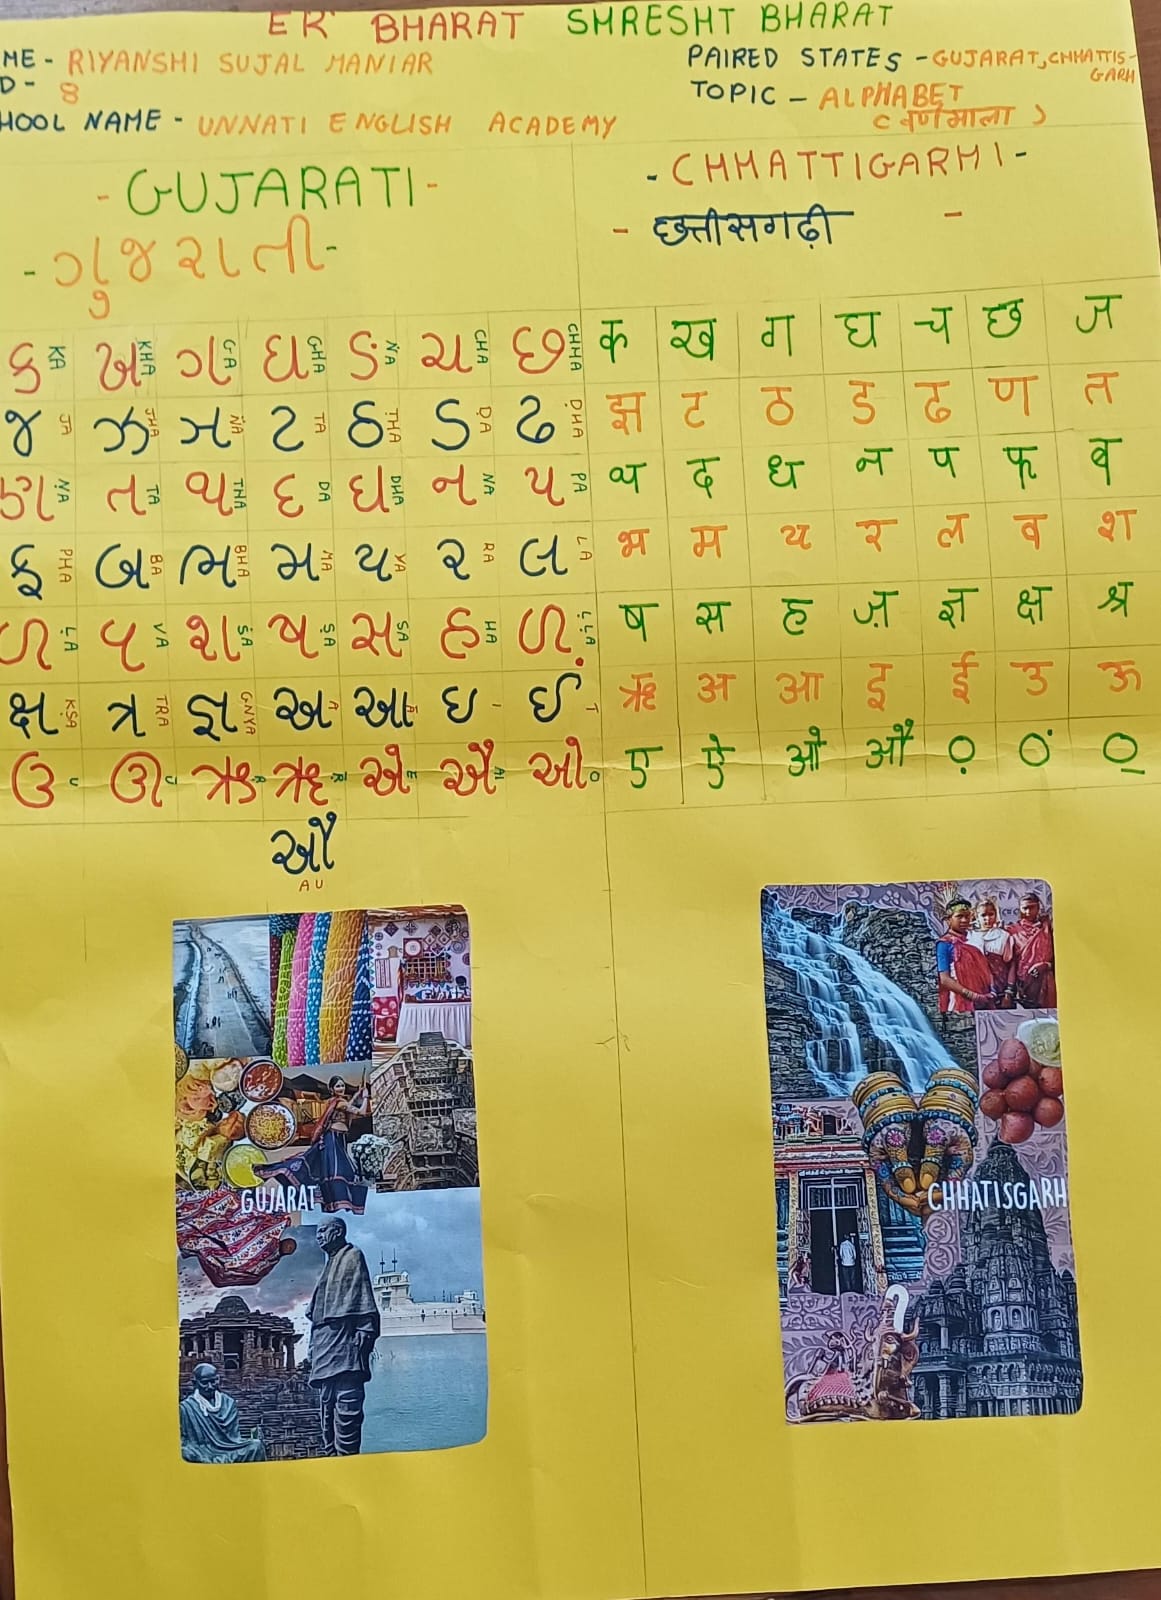 EK BHARAT SHRESHT BHARAT
ME - RIYANSHI SUJAL MANIAR
D - 8
HOOL NAME - UNNATI ENGLISH ACADEMY
PAIRED STATES - GUJARAT, CHHATTIS-
GARH
TOPIC - ALPHABET
(वर्णमाला)
- GUJARATI -
- ગુજરાતી -
ક KA ખ KHA ગ GA ઘ GHA ઙ ṄA ચ CHA છ CHHA
જ JA ઝ JHA ઞ ÑA ટ TA ઠ THA ડ DA ઢ DHA
ણ ṆA ત TA થ THA દ DA ધ DHA ન NA પ PA
ફ PHA બ BA ભ BHA મ MA ય YA ર RA લ LA
ળ ḶA વ VA શ ŚA ષ ṢA સ SA હ HA ળ.
ક્ષ KSA ત્ર TRA જ્ઞ GNYA અ A આ Ā ઇ ઈ
ઉ ઊ ઋ ૠ એ E ઐ AI ઓ O
ઔ
AU
- CHHATTIGARHI -
- छत्तीसगढ़ी -
क ख ग घ च छ ज
झ ट ठ ड ढ ण त
थ द ध न प फ ब
भ म य र ल व श
ष स ह ज़ ज्ञ क्ष श्र
ऋ अ आ इ ई उ ऊ
ए ऐ ओ औ
GUJARAT
CHHATISGARH